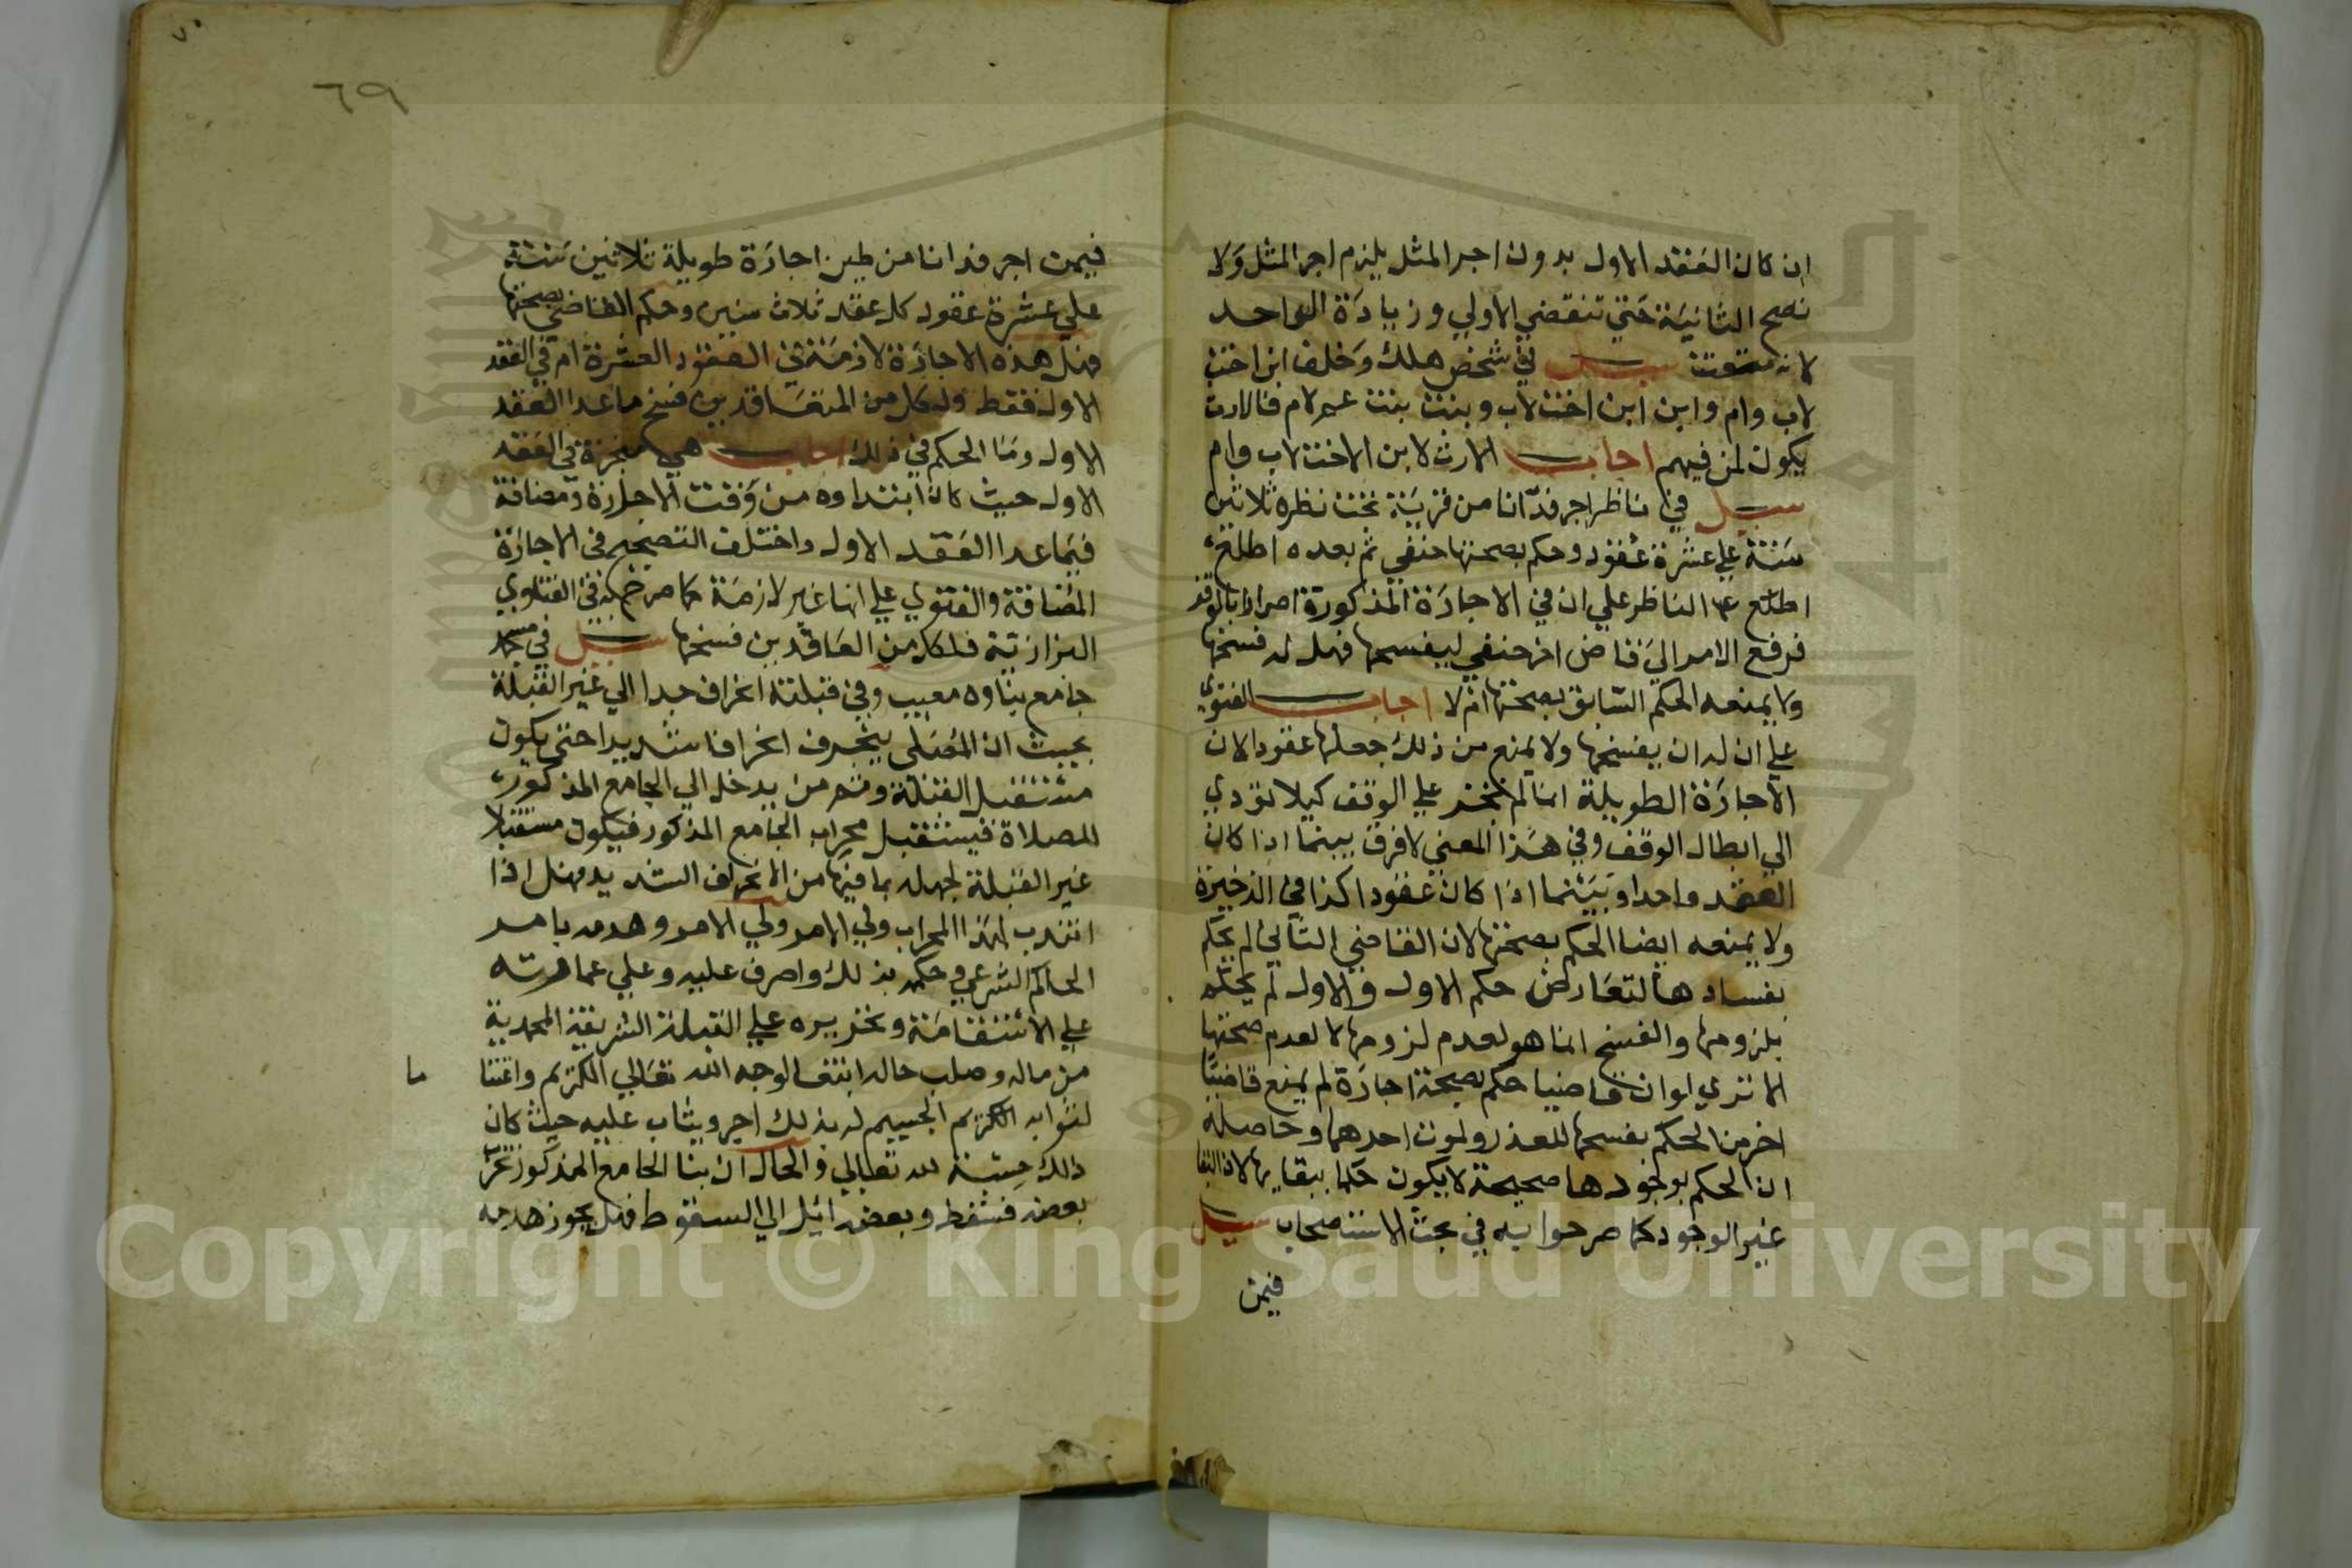 ان كان العقد الاول بدون اجر المثل يلزم اجر المثل ولا
تصح الثانية حتي تنقضي الاولي وزيادة الواحد
لانه سيل في شخص هلك وخلف ابن اخت
لاب وام وابن ابن اخت لاب وبنت بنت عم لام فالارث
يكون لمن فيهم اجاب الارث لابن الاخت لاب وام
سيل في ناظر اجر فدانا من قرية تحت نظره ثلاثين
سنة علي عشرة عقود وحكم بصحتها حنفي ثم بعده اطلع
اطلع الناظر علي ان في الاجارة المذكورة اضرارا بالوقف
فرفع الامر الي قاض اخر حنفي ليفسخها فهل له فسخها
ولا يمنعه الحكم السابق بصحتها ام لا اجاب الفتوي
علي ان له ان يفسخها ولا يمنع من ذلك جعلها عقودا لان
الاجارة الطويلة انما لم تجز علي الوقف كيلا تودي
الي ابطال الوقف وفي هذا المعني لا فرق بينما اذا كان
العقد واحدا وبينما اذا كان عقودا كذا في الذخيرة
ولا يمنعه ايضا الحكم بصحتها لان القاضي الثاني لم يحكم
بفسادها لتعارض حكم الاول والاول لم يحكم
بلزومها والفسخ انما هو لعدم لزومها لا لعدم صحتها
الا تري لو ان قاضيا حكم بصحة اجارة لم يمنع قاضيا
اخر من الحكم بفسخها للعذر او لموت احدهما وحاصله
ان الحكم بوجودها صحيحة لا يكون حكما ببقايها لان البقا
غير الوجود كما صرحوا به في بحث الاستصحاب سيل
فيمن
٦٩
فيمن اجر فدانا من طين اجارة طويلة ثلاثين سنة
علي عشرة عقود كل عقد ثلاث سنين وحكم القاضي بصحتها
فهل هذه الاجارة لازمة في العقود العشرة ام في العقد
الاول فقط ولكل من المتعاقدين فسخ ما عدا العقد
الاول وما الحكم في ذلك اجاب هي منجزة في العقد
الاول حيث كان ابتداوه من وقت الاجارة ومضافة
فيما عدا العقد الاول واختلف التصحيح في الاجارة
المضافة والفتوي علي انها غير لازمة كما صرح به في الفتاوي
البزازية فلكل من العاقدين فسخها سيل في مسجد
جامع بناوه معيب وفي قبلته انحراف جدا الي غير القبلة
بحيث ان المصلي ينحرف انحرافا شديدا حتي يكون
مستقبل القبلة ومن يدخل الي الجامع المذكور
للصلاة فيستقبل محراب الجامع المذكور فيكون مستقبلا
غير القبلة لجهله بما فيها من الانحراف الشديد فهل اذا
انتدب لهذا المحراب ولي الامر ولي الامر وهدمه بامر
الحاكم الشرعي وحكمه بذلك واصرف عليه وعلي عمارته
علي الاستقامة وتحريره علي القبلة الشريفة المحمدية
من ماله وصلب حاله ابتغا لوجه الله تعالي الكريم واغتنا ما
لثوابه الكريم الجسيم له بذلك اجر ويثاب عليه حيث كان
ذلك حسبة لله تعالي والحال ان بنا الجامع المذكور
بعضه فسقط وبعضه ائيل الي السقوط فهل يجوز هدمه
Copyright © King Saud University